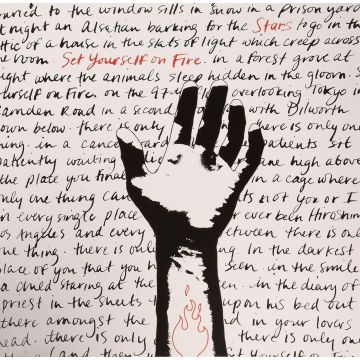 to the window sills in snow in a prison yard
ought an Alsatian barking for the Stars to go in th
ttic of a house in the slats of light which creep across
he room. Set Yourself on Fire. in a forest grove at
ight where the animals sleep hidden in the gloom. S
urself on Fire. on the 97th overlooking Tokyo in
amden Road in a second with Dilworth
own below. there is only there is only on
hing. in a cancer ward patients sit
patiently waiting high above
the place you final in a cage where
nly one thing can ts not you or I
in every single place ever been Hiroshim
os Angeles and every between there is on
ne thing. there is only ng. In the darkest
place of you that you h seen. in the smile
a child staring at the in the diary of
priest in the sheets upon his bed out
there amongst the d in your lovers
head. there is only there is only on